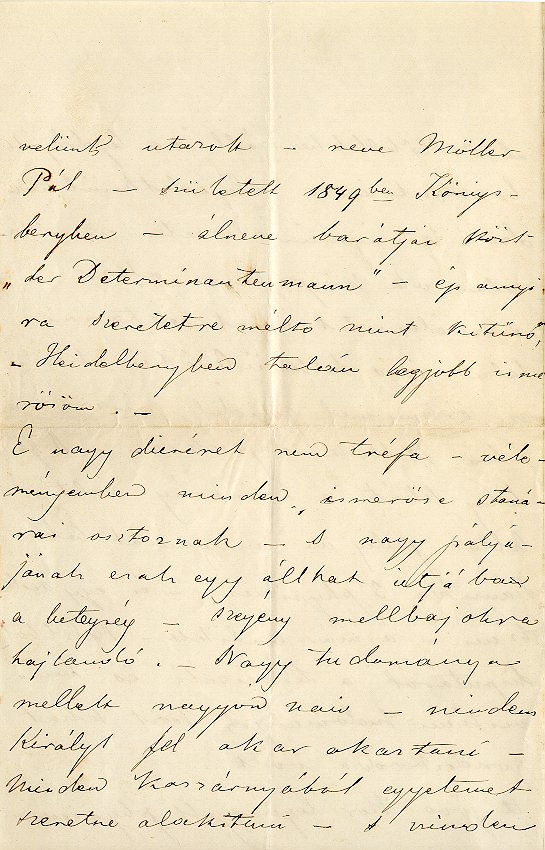 velünk utazott – neve Möller
Pál – született 1849ben Königs-
bergben – álneve barátjai közt
„der Determinantenmann" – ép annyi-
ra szeretetre méltó mint kitünő,
– Heidelbergben talán legjobb isme
rősöm. –
E nagy dicséret nem tréfa – véle-
ményemben minden ismerőse s taná-
rai osztoznak – s nagy pályá-
jának csak egy állhat útjában
a betegség – szegény mellbajokra
hajlandó. – Nagy tudománya
mellett nagyon naiv – minden
Királyt fel akar akasztani –
Minden kaszárnyából egyetemet
szeretne alakitani – s minden